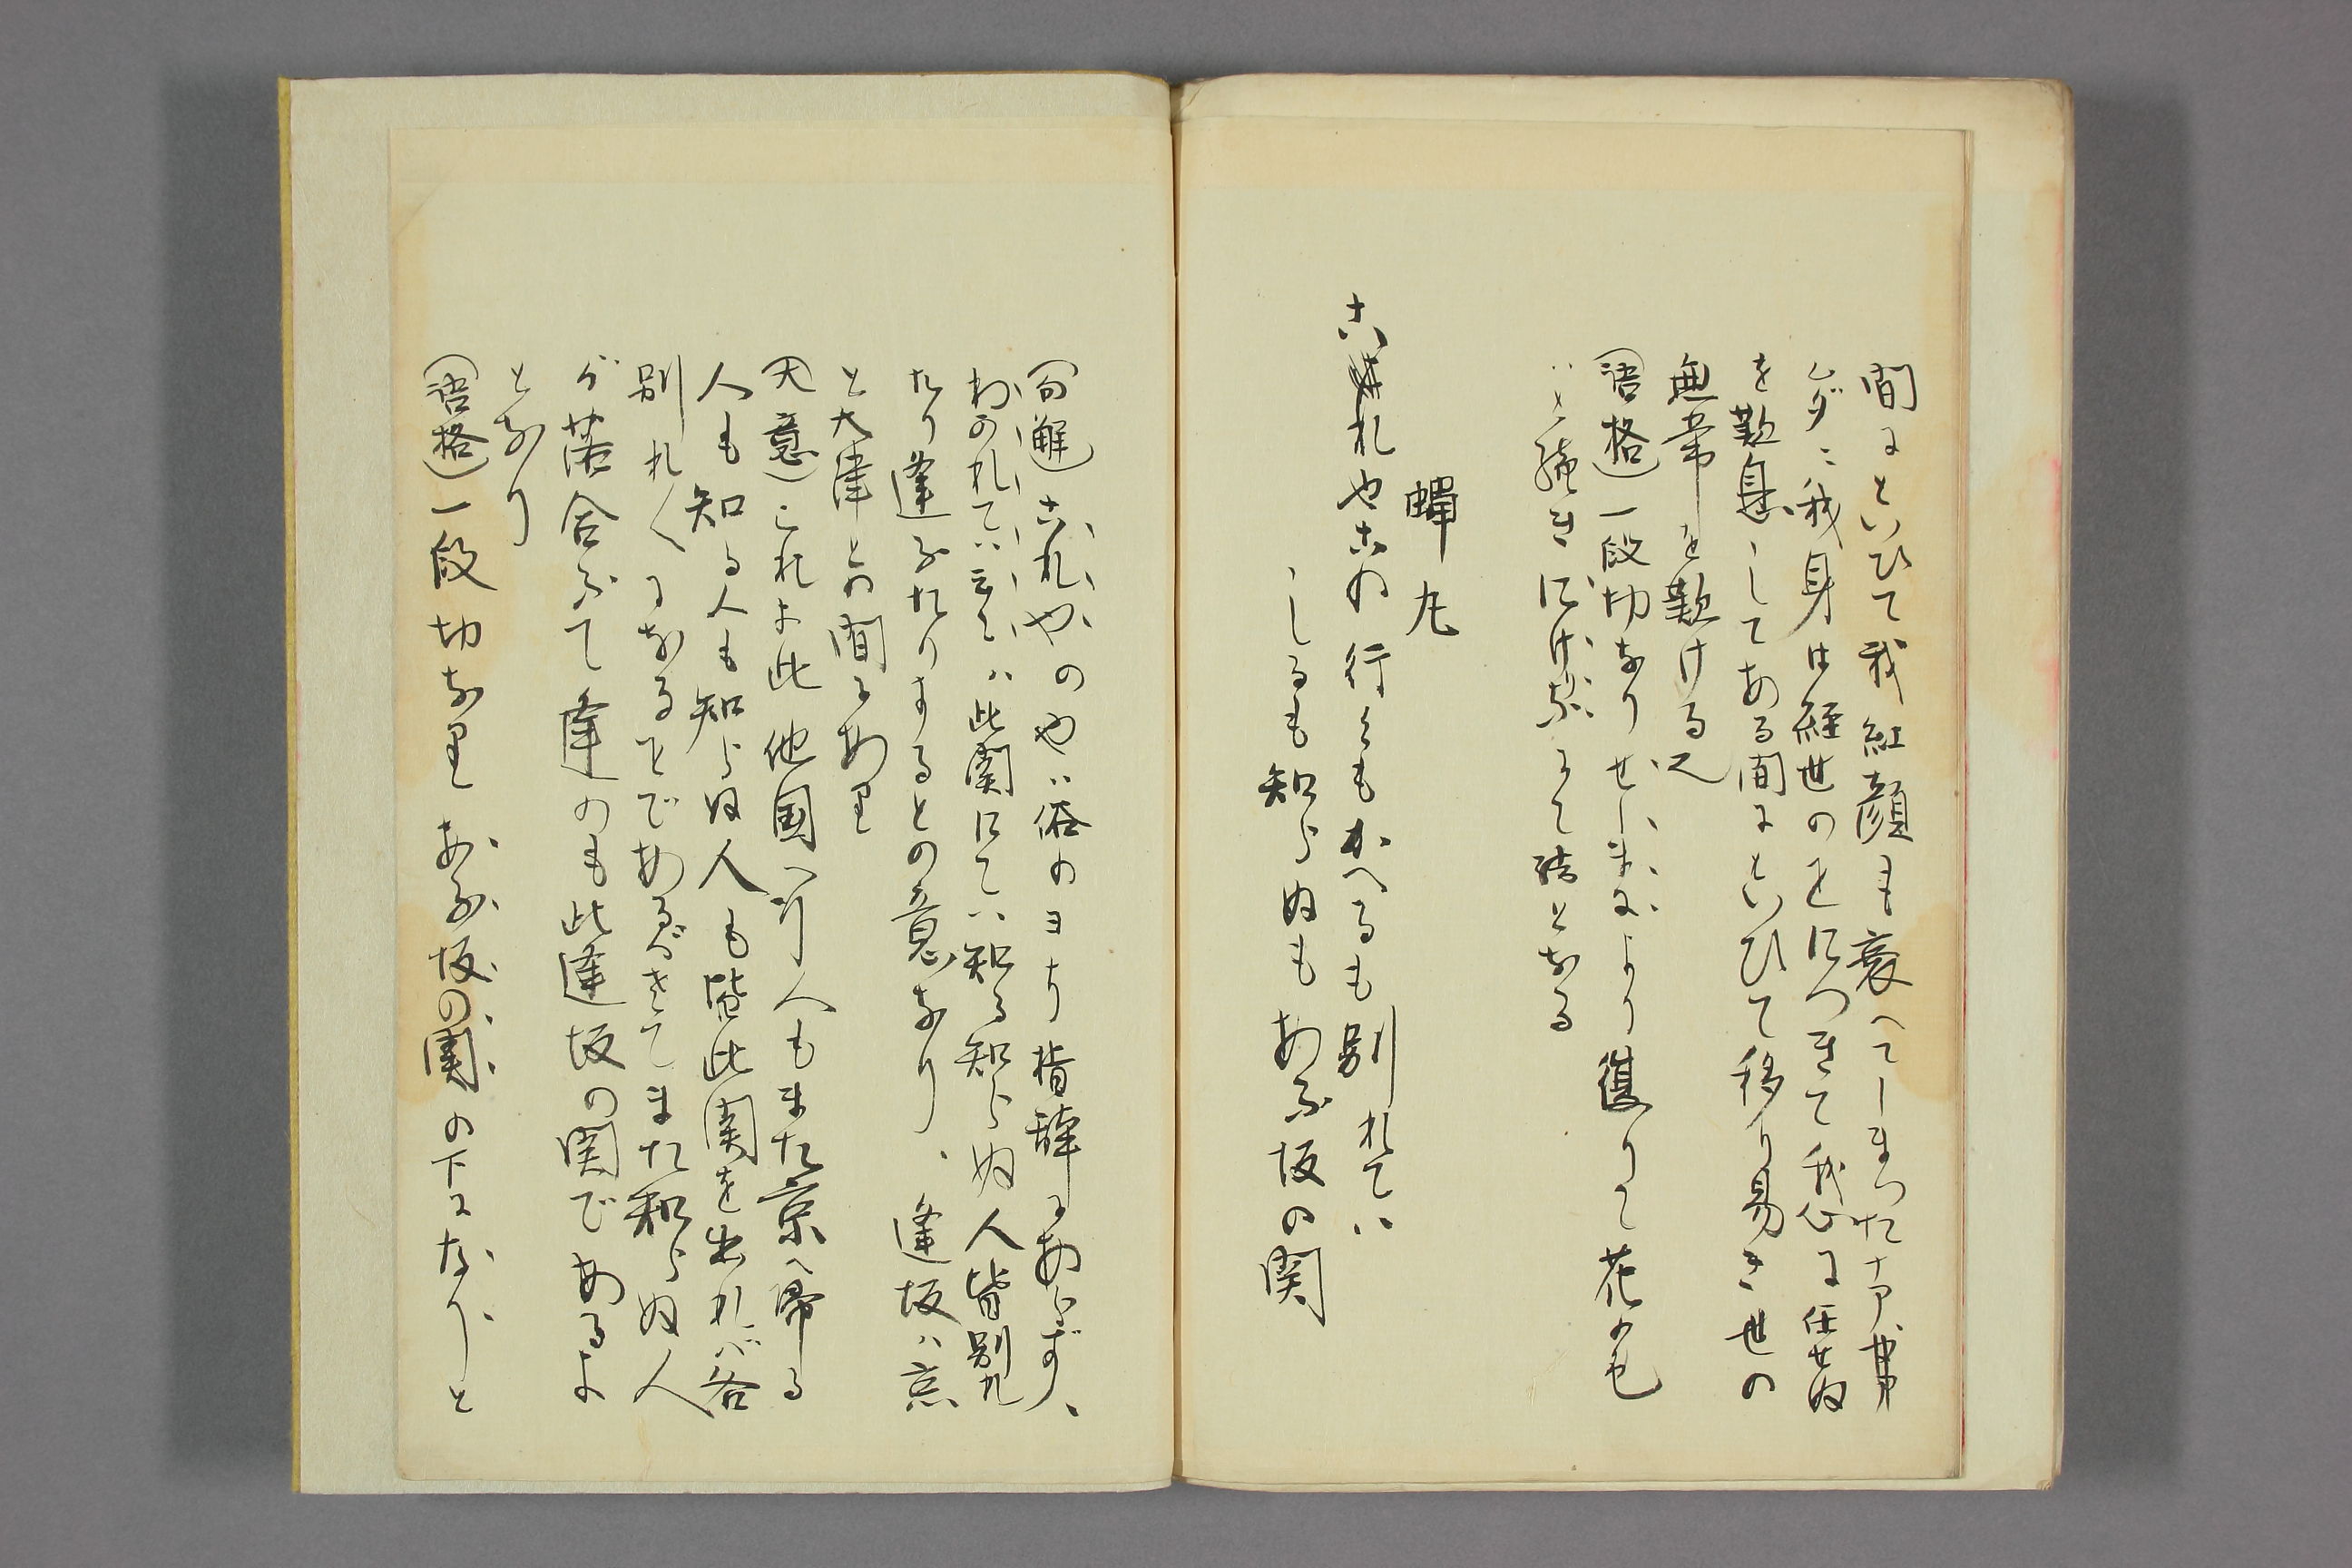 間にといひて我紅顔も衰へてしまつたナア畢
ムダニ我身は経世のをにつきて我心に任せぬ
を歎息してある間にといひて移り易き世の
無常を歎ける也
(語格)一段切なりせしまによ\り復りて花の色
はと続きにけるなにて結となる
蝉丸
これやこの行くもかへるも別れては
しるも知らぬもあふ坂の関
(句解)これやのやは俗のヨナり指辞にあらず、
わかれては云々は此関にては知る知らぬ人皆別れ
たり逢ふたりするとの意なり、逢坂は京
と大津との間にあり
(大意)これよ此他国へ行人もまた京へ帰る
人も知る人も知らぬ人も皆此関を出れば各
別れ〳〵になるをであるべきてまた知らぬ人
が落合ふて逢のも此逢坂の関であるよ
となり
(語格)一段切なりあふ坂の関の下になりと